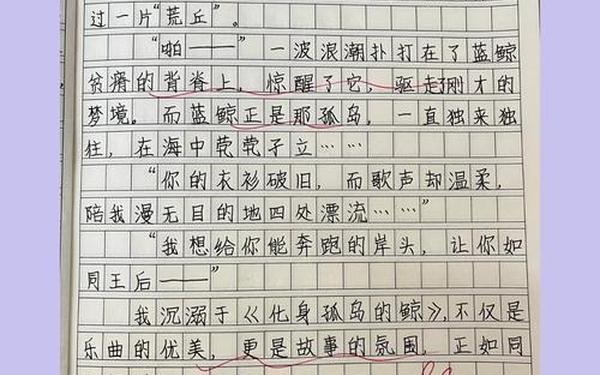 过一片“荒丘”。
“啪——”一波浪潮扑打在了蓝鲸
贫瘠的背脊上，惊醒了它，驱走了刚才的
梦境。而蓝鲸正是那孤岛，一直独来独
往，在海中茕茕孑立……
“你的衣衫破旧，而歌声却温柔，
陪我漫无目的地四处漂流……”
“我想给你能奔跑的岸头，让你如
同王后——”
我沉溺于《化身孤岛的鲸》，不仅是
乐曲的优美，更是故事的氛围，正如同